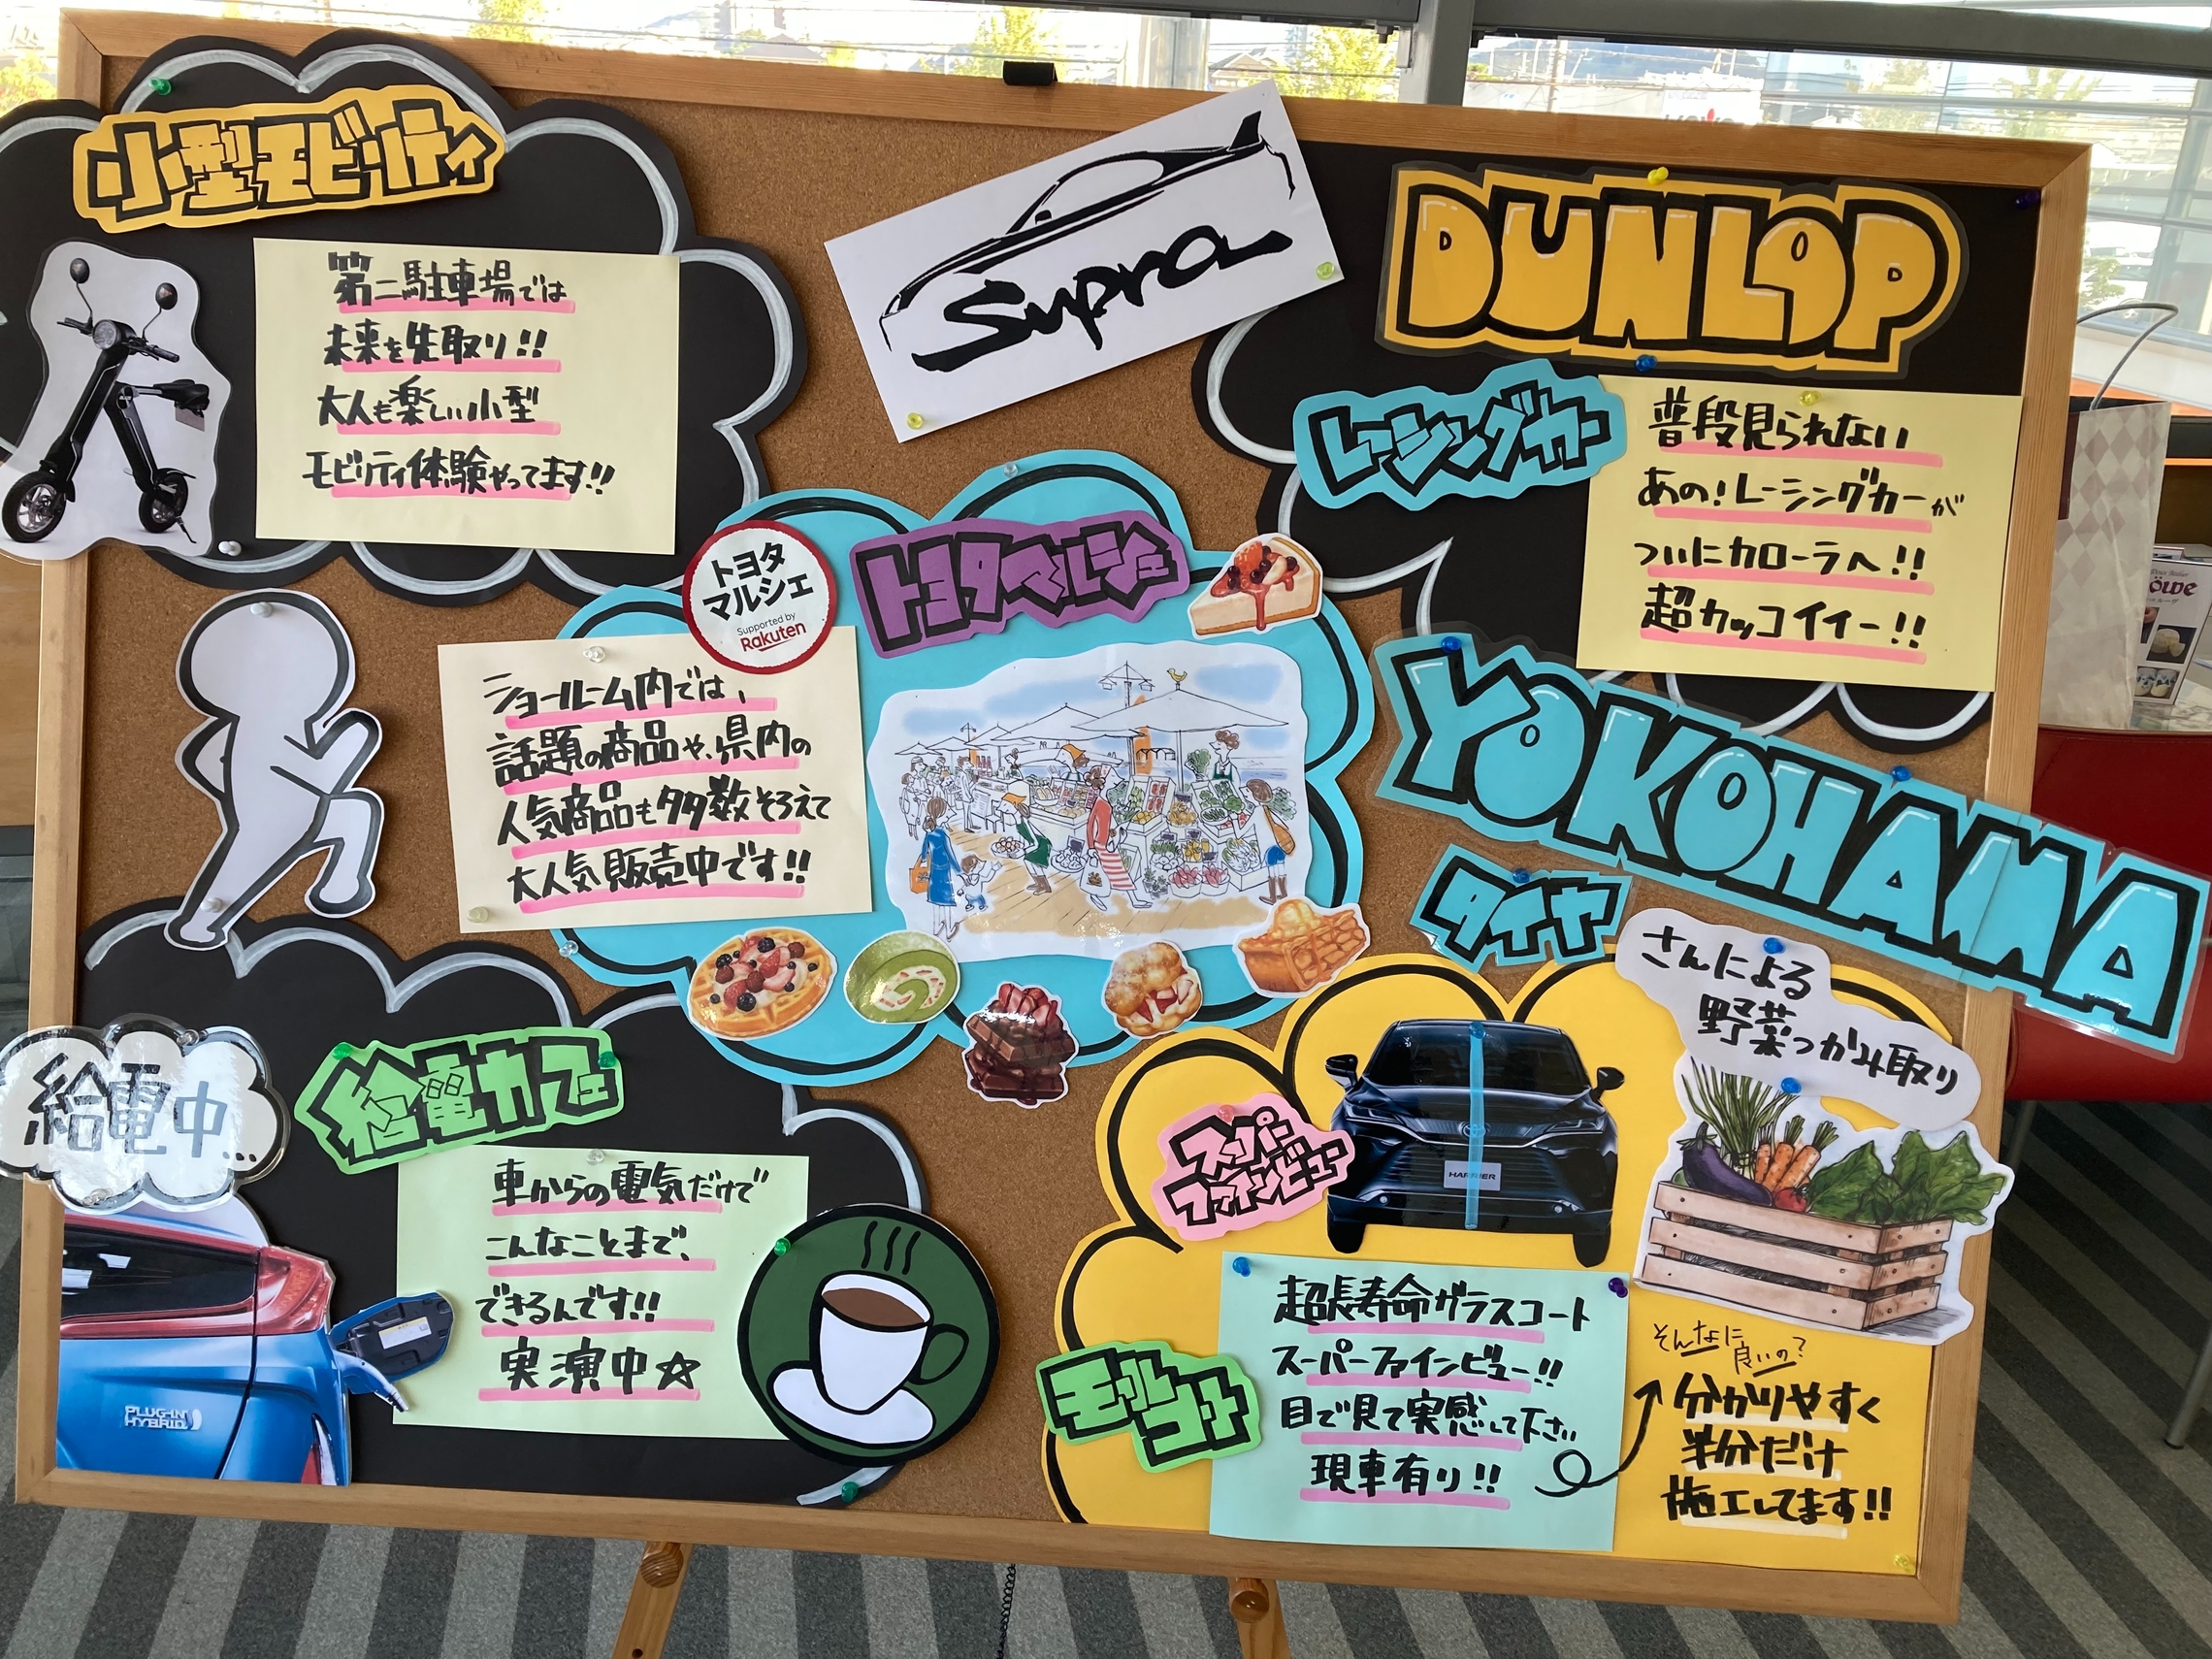 小型モビリティ
第二駐車場では
未来を先取り!!
大人も楽しい小型
モビリティ体験やってます!!
Supra
DUNLOP
レーシングカー
普段見られない
あの!レーシングカーが
ついにカローラへ!!
超カッコイイー!!
トヨタ
マルシェ
Supported by
Rakuten
トヨタマルシェ
ショールーム内では、
話題の商品や、県内の
人気商品も多数そろえて
大人気販売中です!!
YOKOHAMA
タイヤ
さんによる
野菜つかみ取り
給電中...
給電カフェ
車からの電気だけで
こんなことまで、
できるんです!!
実演中☆
PLUG-IN
HYBRID
スーパー
ファインビュー
HARRIER
モデル
超長寿命ガラスコート
スーパーファインビュー!!
目で見て実感して下さい
現車有り!!
そんなに
良いの?
分かりやすく
半分だけ
施工してます!!